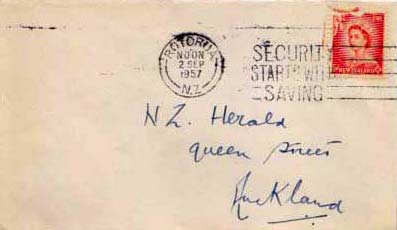 ROTORUA
NOON
2 SEP
1957
N.Z.
SECURITY
STARTS WITH
SAVING
NEW ZEALAND
N Z. Herald
queen street
Auckland